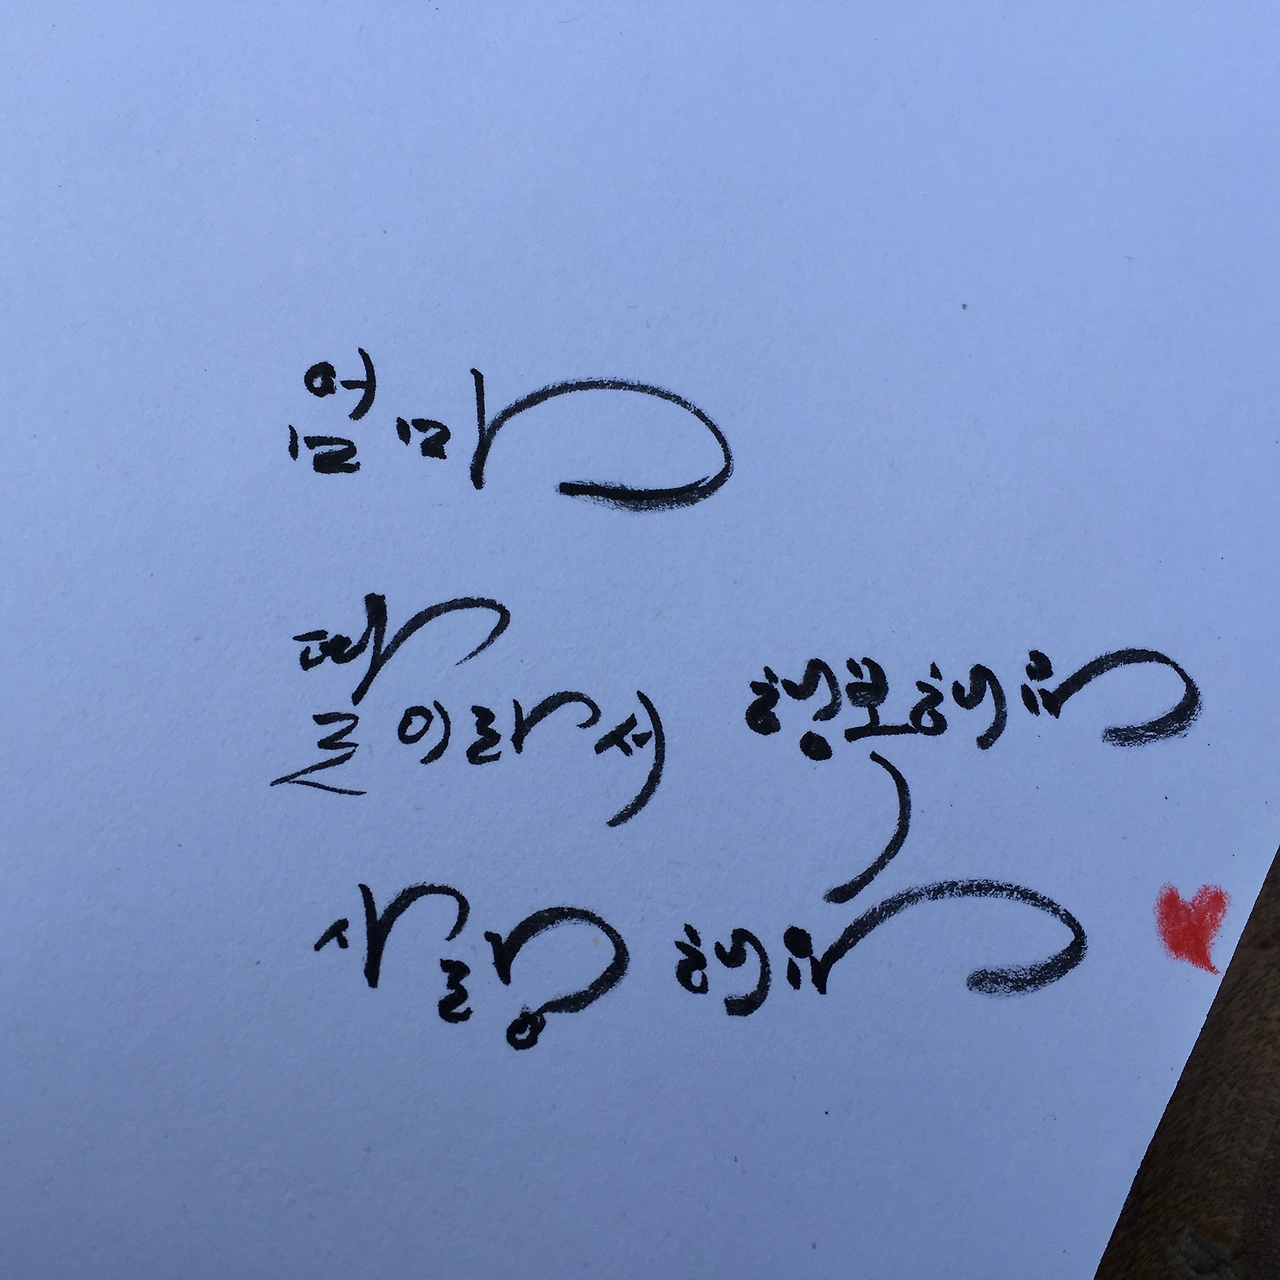 엄마
딸이라서 행복해요
사랑해요